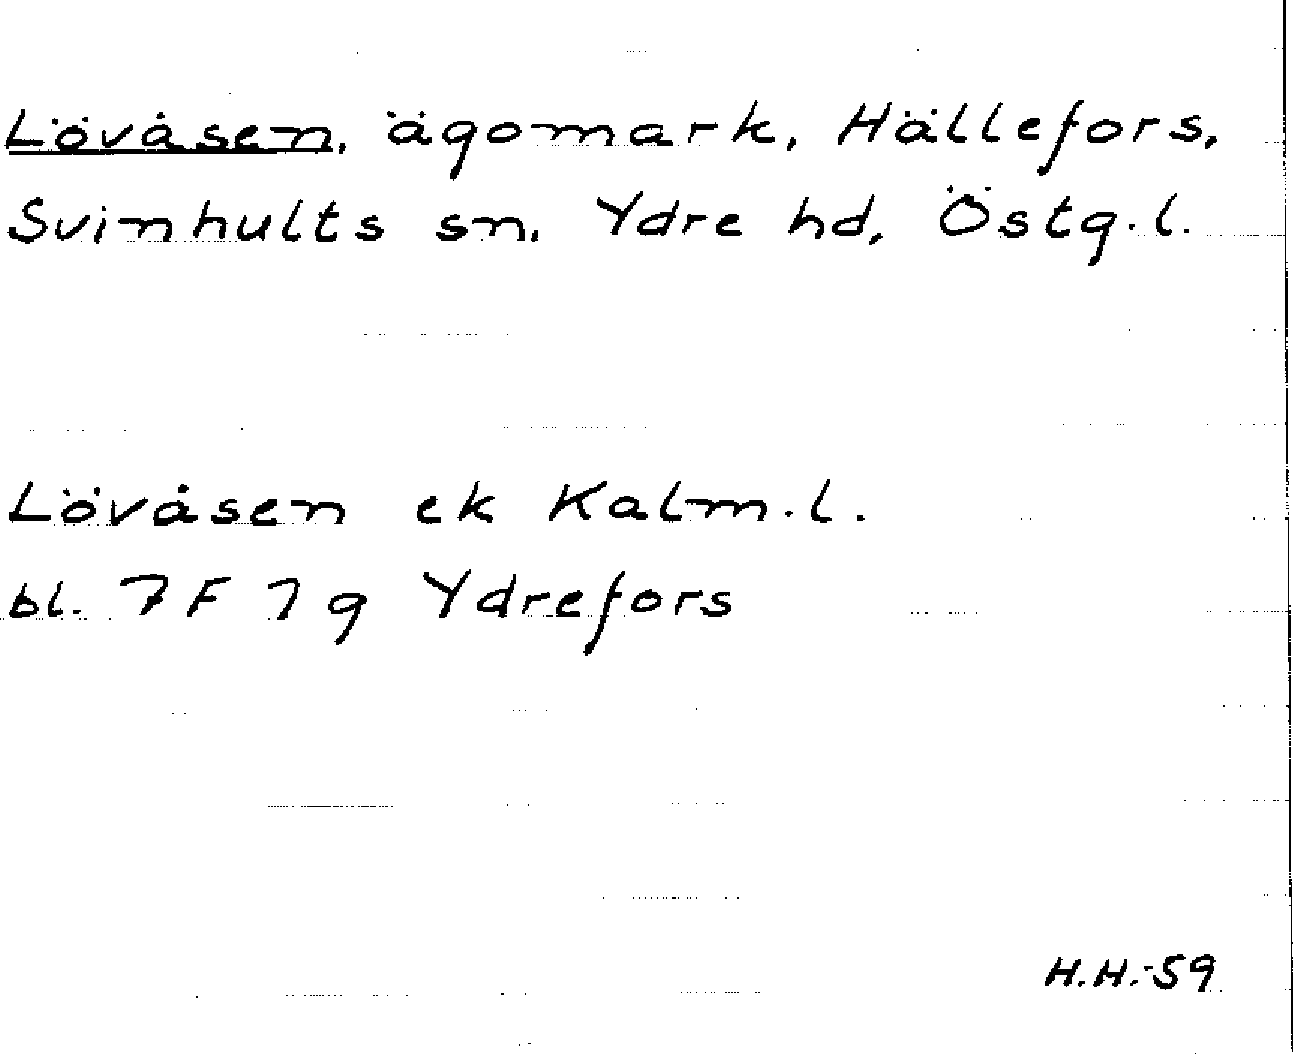 Lövåsen, ägomark, Hällefors,
Svinhults sn, Ydre hd, Östg.l.
Lövåsen ek Kalm.l.
bl. 7 F 7 g Ydrefors
H.H.-59